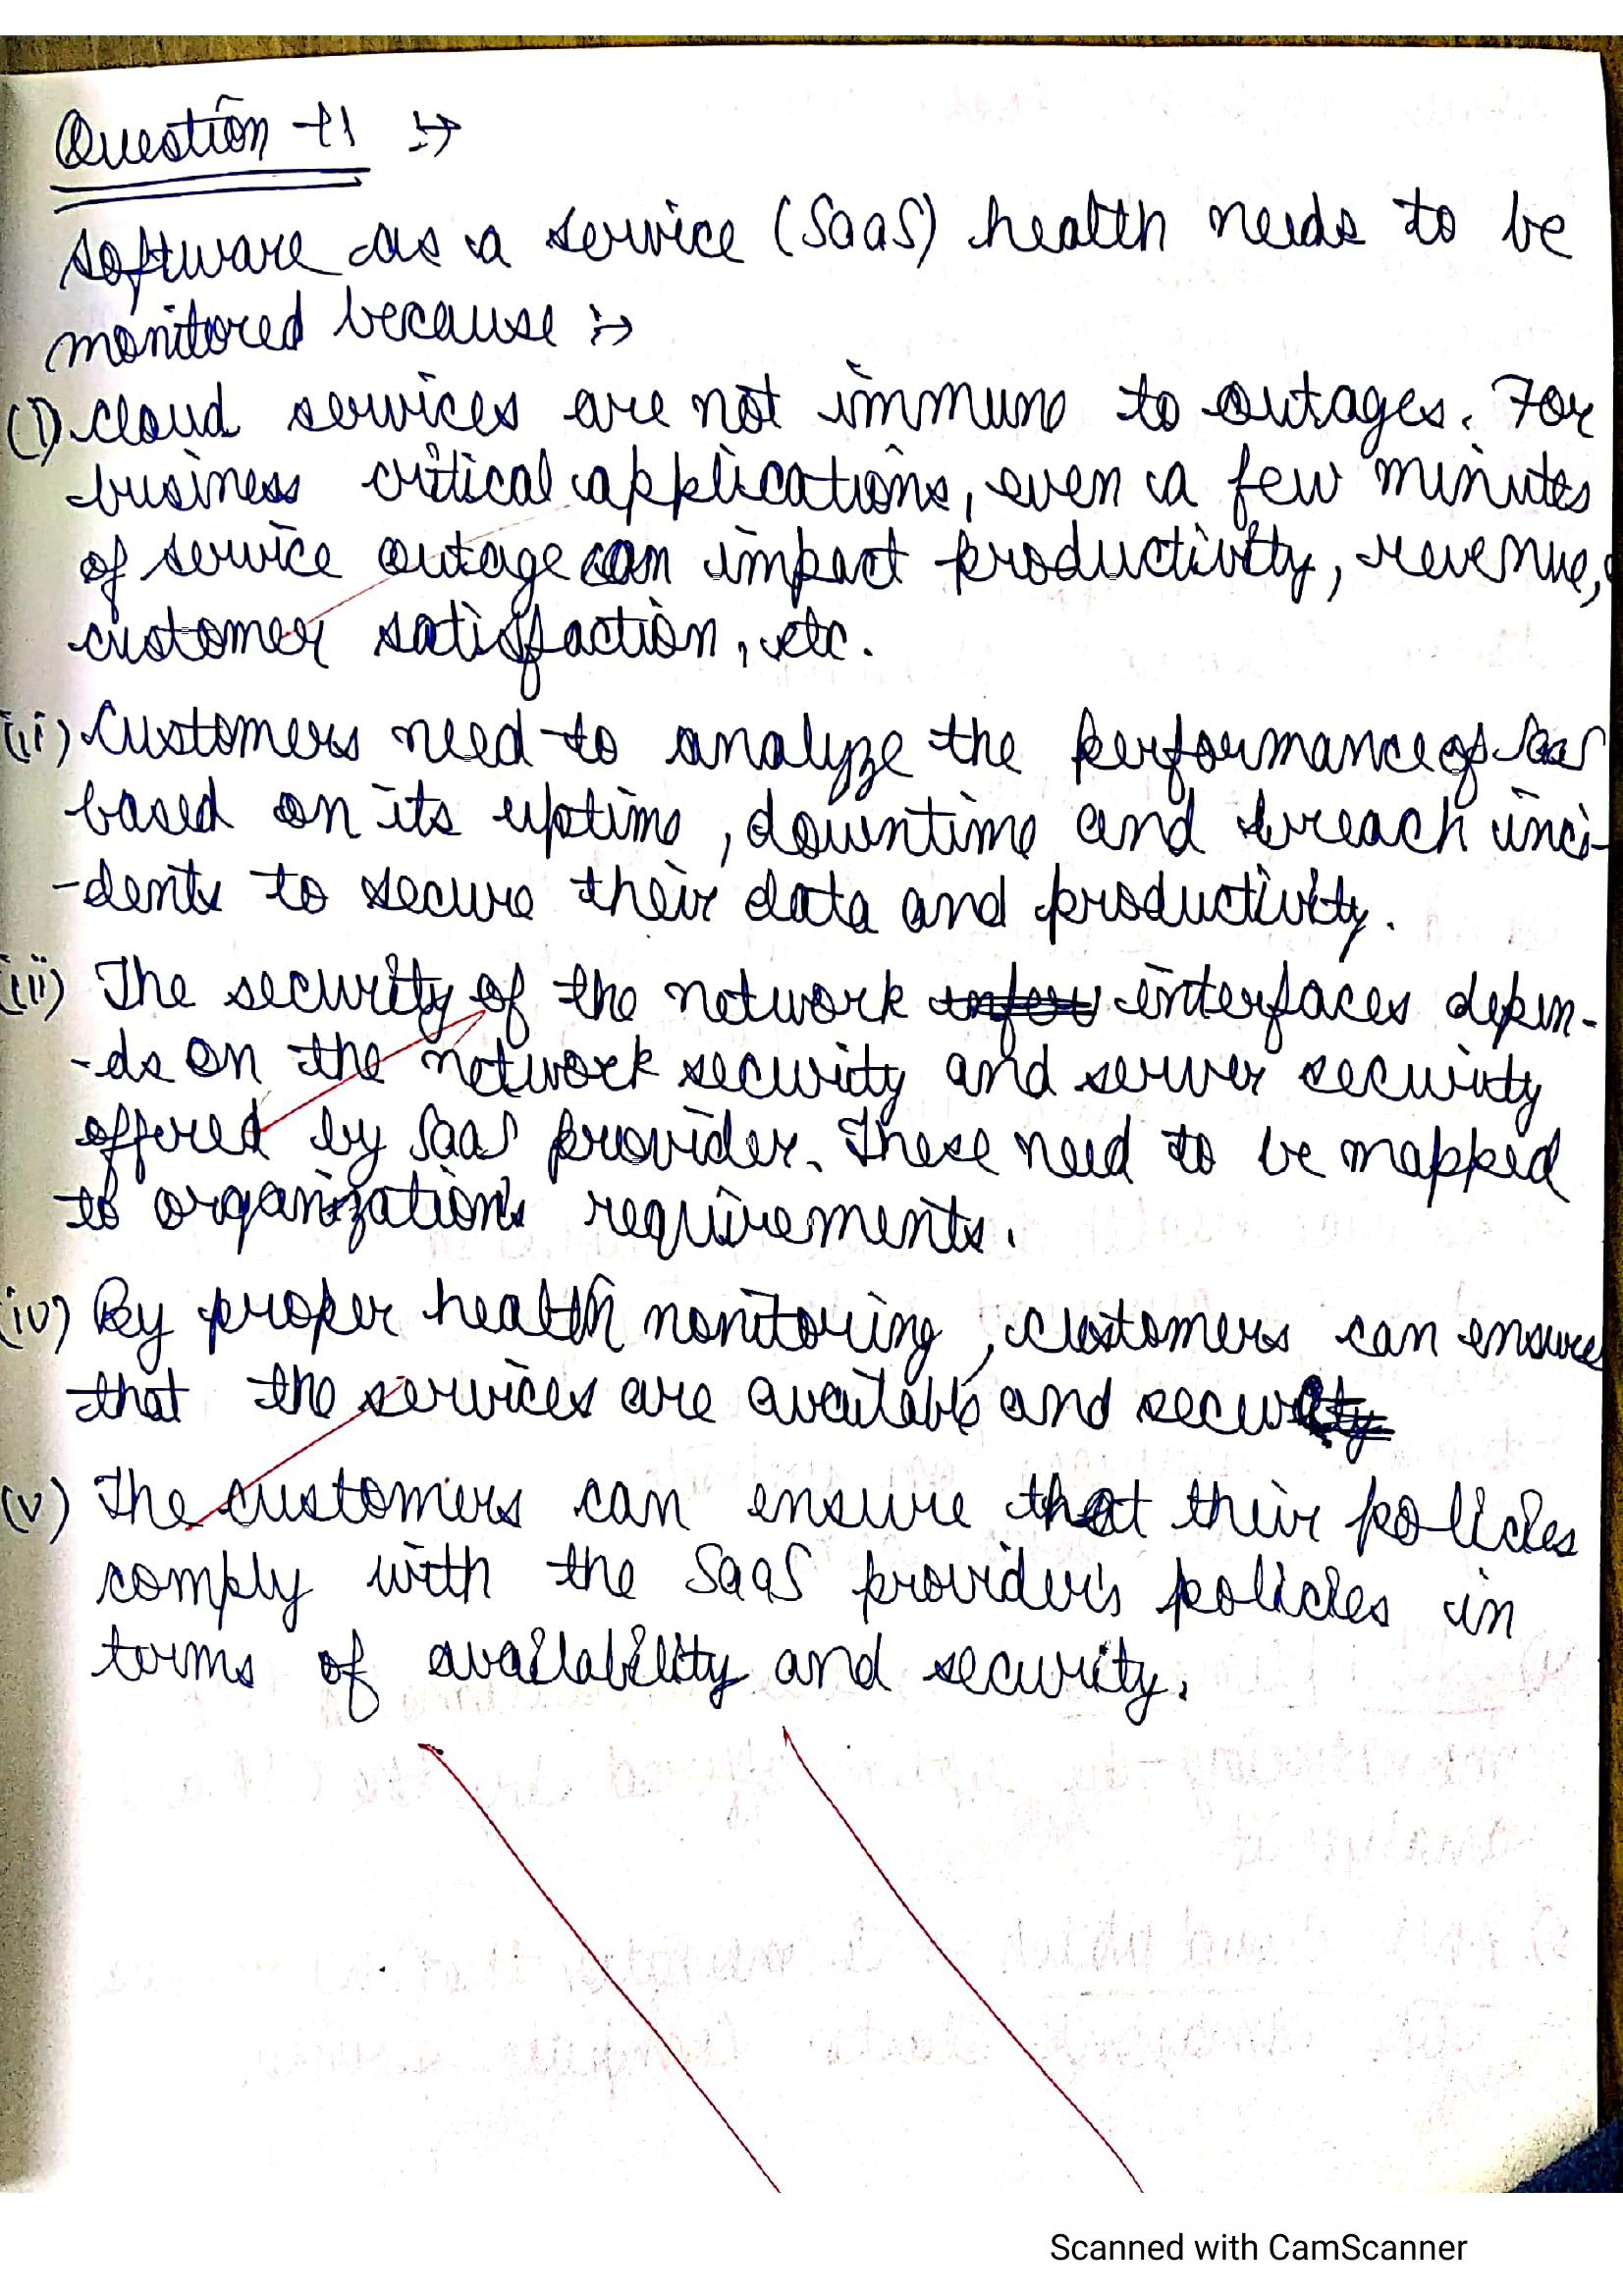 Question - 11 :→
Software as a service (SaaS) health needs to be
monitored because :→
(i) Cloud services are not immune to outages. For
business critical applications, even a few minutes
of service outage can impact productivity, revenue,
customer satisfaction, etc.
(ii) Customers need to analyze the performance of SaaS
based on its uptime, downtime and breach inci-
-dents to secure their data and productivity.
(iii) The security of the network interfaces depen-
-ds on the network security and server security
offered by SaaS provider. These need to be mapped
to organization's requirements.
(iv) By proper health monitoring, customers can ensure
that the services are available and secure
(v) The customers can ensure that their policies
comply with the SaaS provider's policies in
terms of availability and security.
Scanned with CamScanner